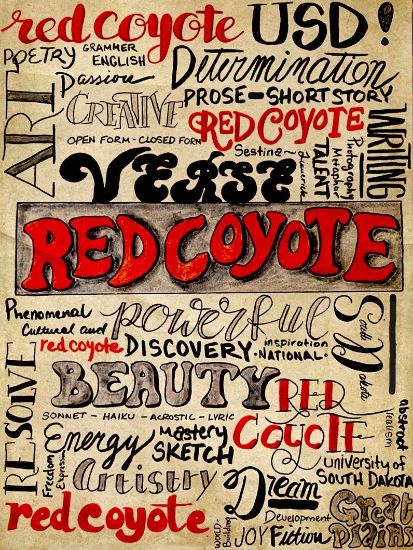 red coyote USD!
POETRY GRAMMER
ENGLISH
Passion
Determination
ART
CREATIVE
PROSE - SHORT STORY
RED COYOTE
OPEN FORM - CLOSED FORM
Sestina -
Limerick
TALENT
Metaphor
Photography
WRITING
VERSE
RED COYOTE
Phenomenal
Cultural and
red coyote
powerful
South Dakota
DISCOVERY
inspiration
-NATIONAL-
RESOLVE
BEAUTY
RED
COYOTE
abstract
SONNET - HAIKU - ACROSTIC - LYRIC
Energy
Mastery
SKETCH
Freedom
Expression
Artistry
university of
SOUTH DAKOTA
Dream
red coyote
WORLD-
Building
Development
JOY Fiction
Great
Plains